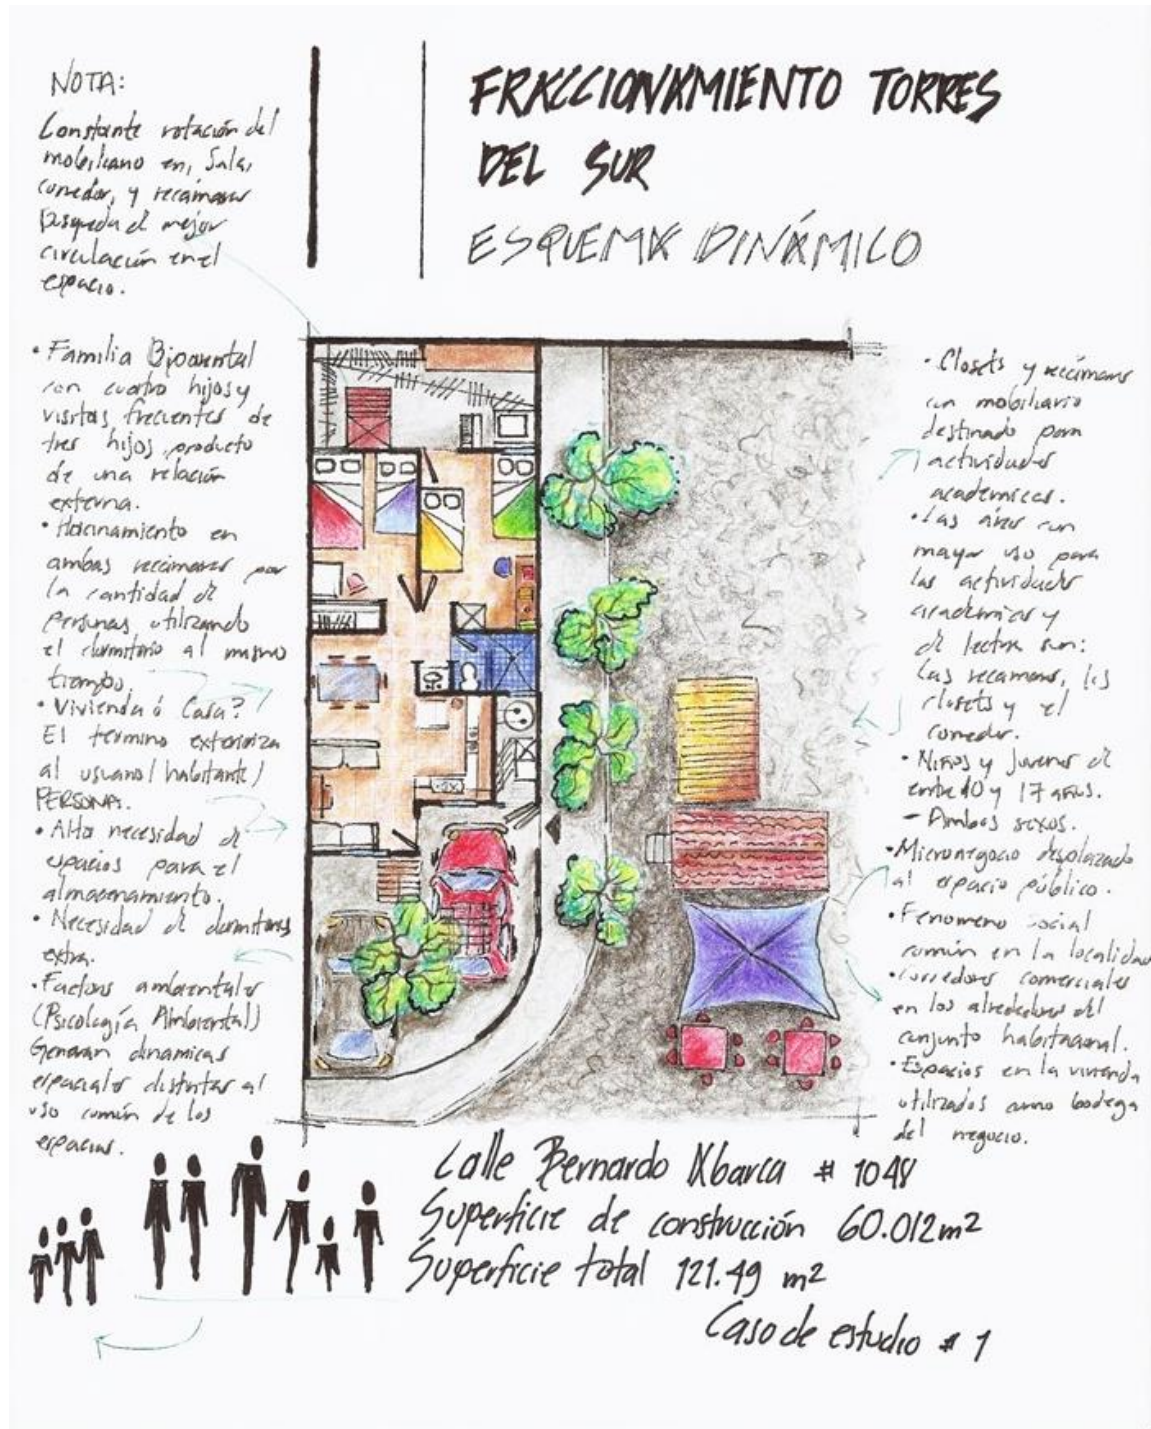 NOTA:
Constante rotación del
mobiliario en, Sala,
comedor, y recámaras
búsqueda d mejor
circulación en el
espacio.
FRACCIONAMIENTO TORRES
DEL SUR
ESQUEMA DINÁMICO
• Familia Biparental
con cuatro hijos y
visitas frecuentes de
tres hijos producto
de una relación
externa.
• Hacinamiento en
ambas recámaras por
la cantidad d
personas utilizando
el dormitorio al mismo
tiempo.
• Vivienda ó Casa?
El termino exterioriza
al usuario/habitante/
PERSONA.
• Alta necesidad d
espacios para el
almacenamiento.
• Necesidad d dormitorios
extra.
• Factores ambientales
(Psicología Ambiental)
Generan dinamicas
espaciales distintas al
uso común de los
espacios.
• Closets y recámaras
con mobiliario
destinado para
actividades
académicas.
• Las áreas con
mayor uso para
las actividades
académicas y
d lectura son:
Las recamaras, los
closets y el
comedor.
• Niños y Jovenes d
entre 10 y 17 años.
- Ambos sexos.
• Micronegocio desplazado
al espacio público.
• Fenomeno social
común en la localidad
• Corredores comerciales
en los alrededores del
conjunto habitacional.
• Espacios en la vivienda
utilizados como bodega
del negocio.
Calle Bernardo Abarca # 1048
Superficie de construcción 60.012 m2
Superficie total 121.49 m2
Caso de estudio # 1